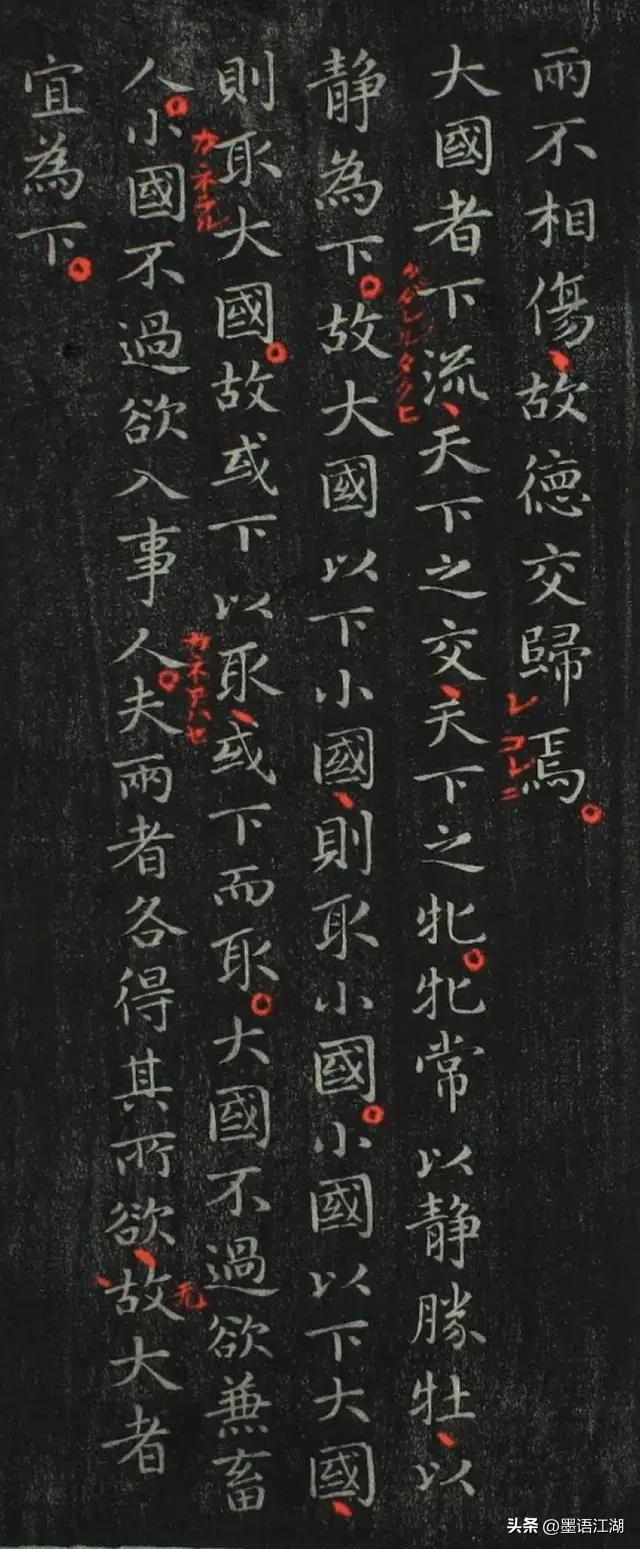 兩不相傷故德交歸焉
大國者下流天下之交天下之牝牝常以静勝牡以
静為下故大國以下小國則取小國小國以下大國
則取大國故或下以取或下而取大國不過欲兼畜
人小國不過欲入事人夫兩者各得其所欲故大者
宜為下
头条 @墨语江湖